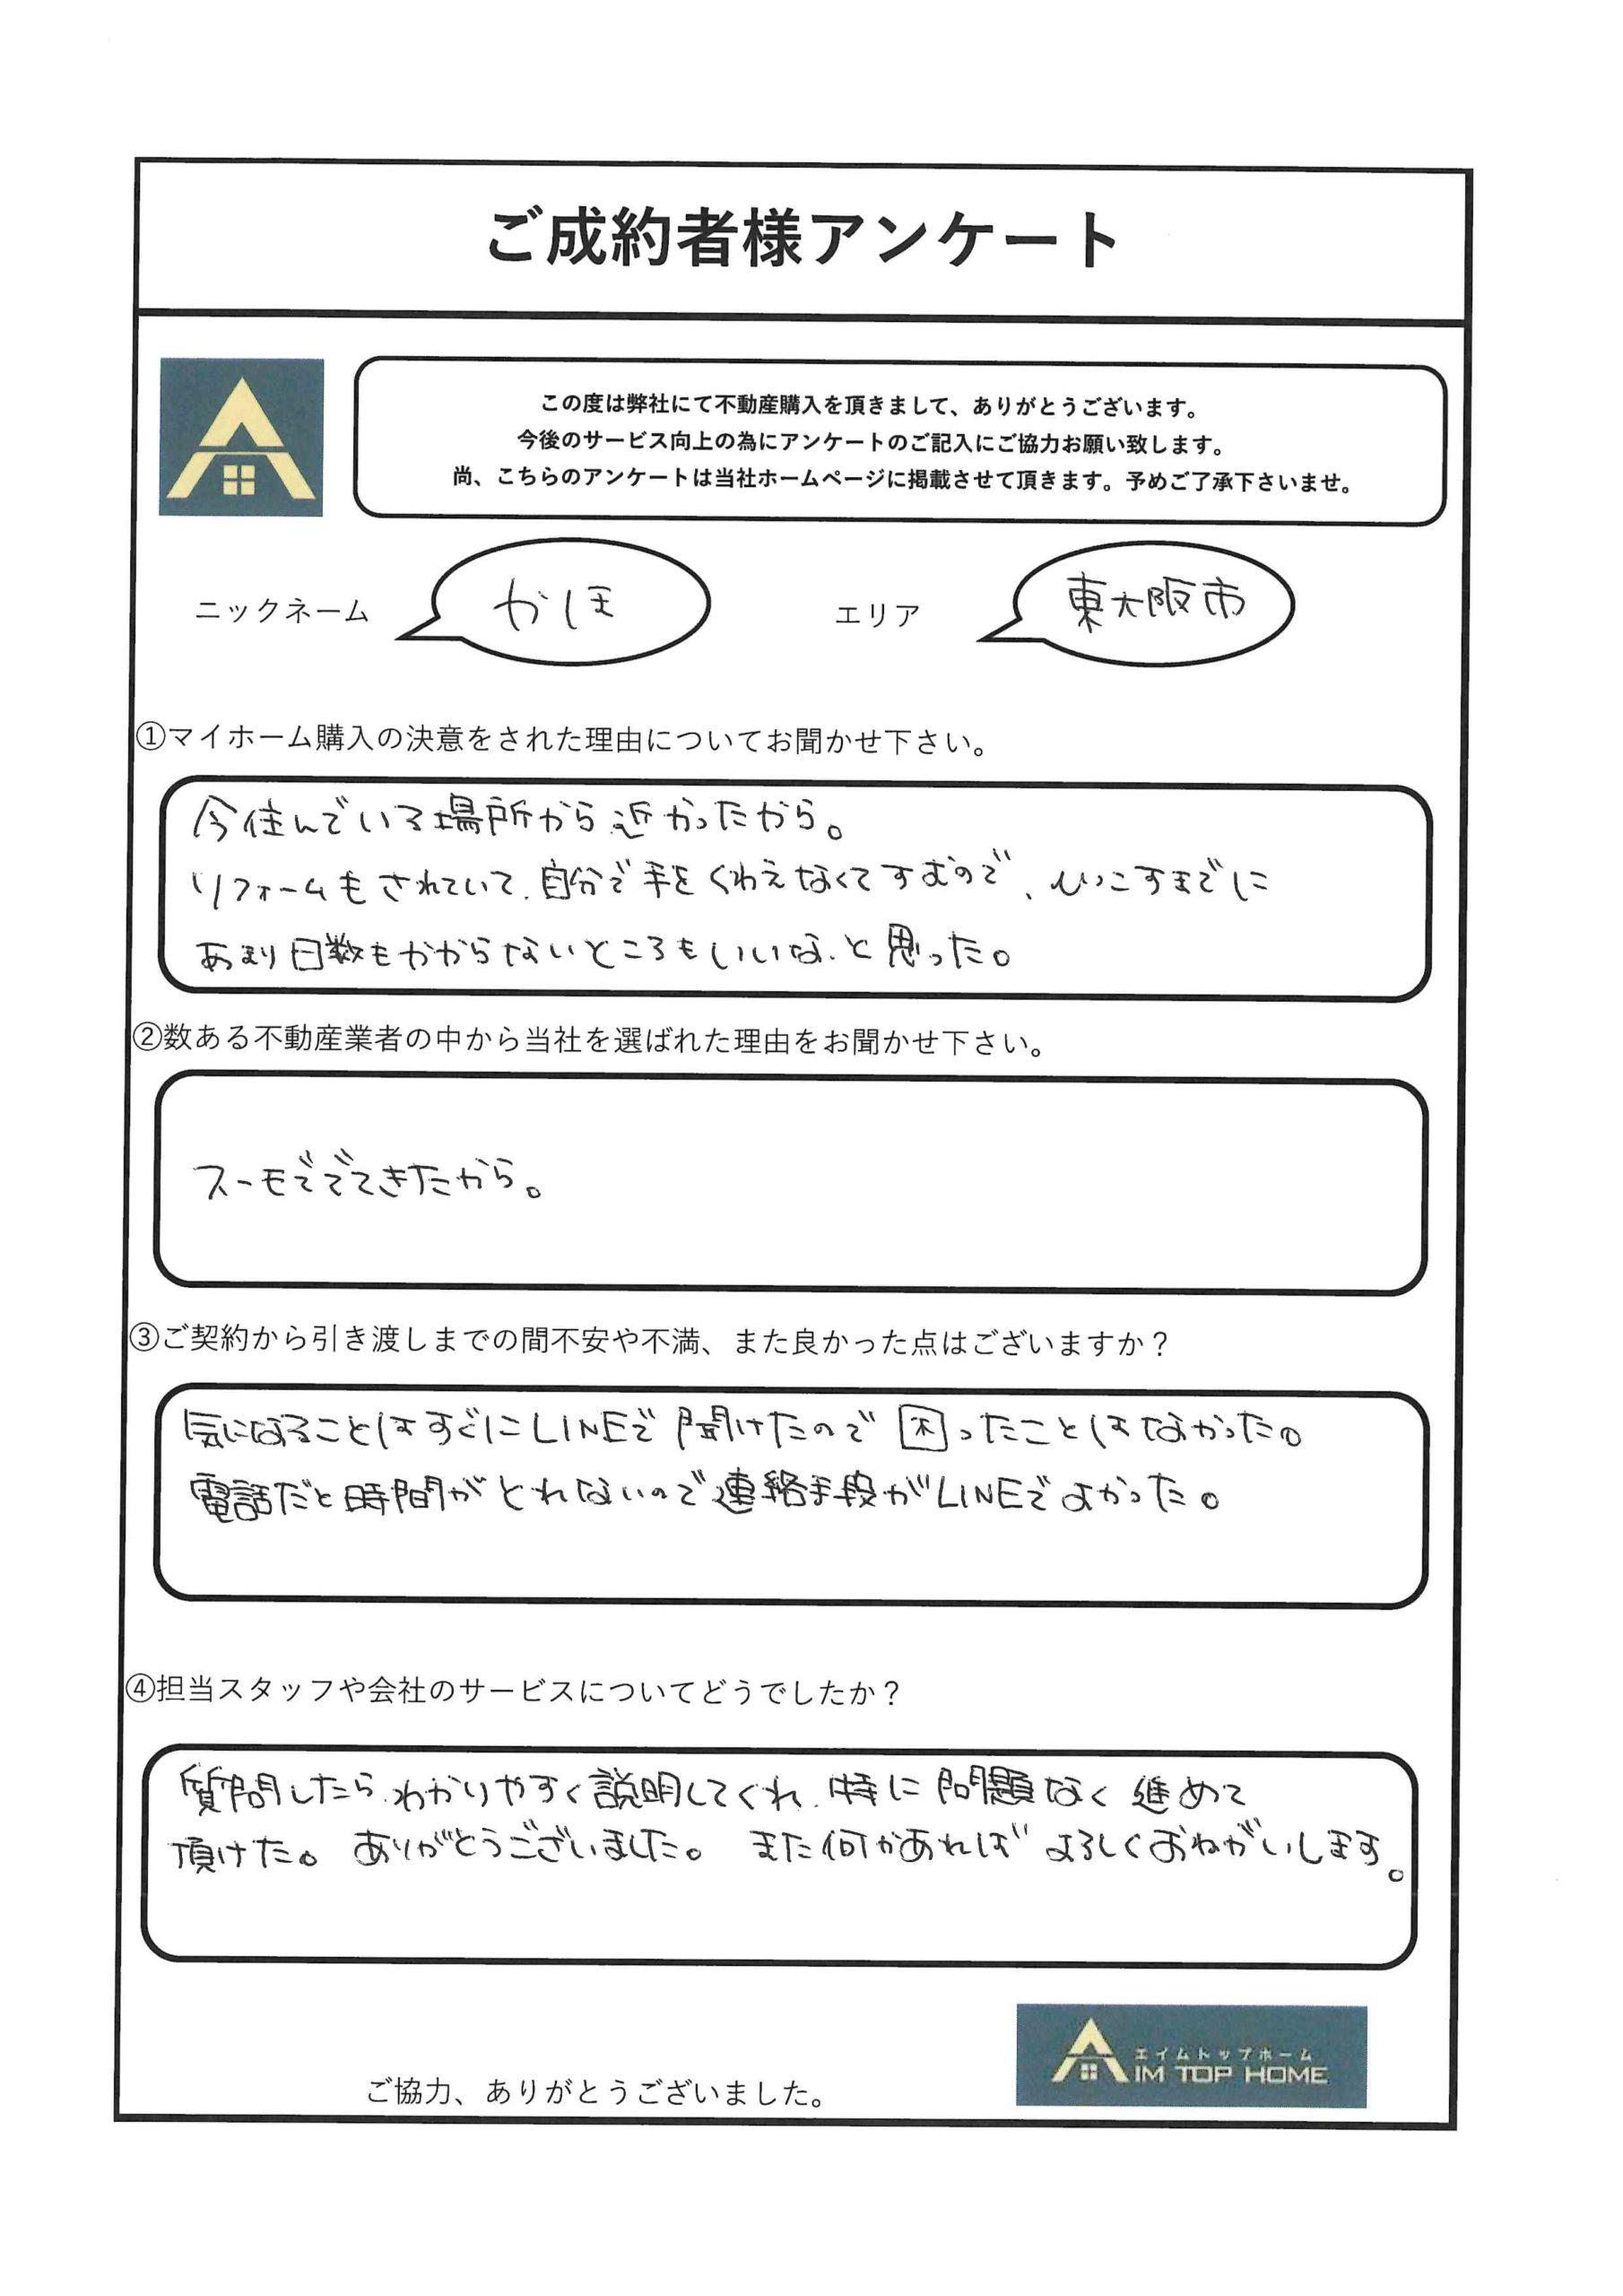 ご成約者様アンケート
この度は弊社にて不動産購入を頂きまして、ありがとうございます。
今後のサービス向上の為にアンケートのご記入にご協力お願い致します。
尚、こちらのアンケートは当社ホームページに掲載させて頂きます。予めご了承下さいませ。
ニックネーム かほ エリア 東大阪市
①マイホーム購入の決意をされた理由についてお聞かせ下さい。
今住んでいる場所から近かったから。
リフォームもされていて、自分で手をくわえなくてすむので、ひっこすまでに
あまり日数もかからないところもいいな、と思った。
②数ある不動産業者の中から当社を選ばれた理由をお聞かせ下さい。
スーモででてきたから。
③ご契約から引き渡しまでの間不安や不満、また良かった点はございますか？
気になることはすぐにLINEで聞けたので困ったことはなかった。
電話だと時間がとれないので連絡手段がLINEでよかった。
④担当スタッフや会社のサービスについてどうでしたか？
質問したら、わかりやすく説明してくれ、特に問題なく進めて
頂けた。ありがとうございました。また何かあればよろしくおねがいします。
エイムトップホーム
AIM TOP HOME
ご協力、ありがとうございました。